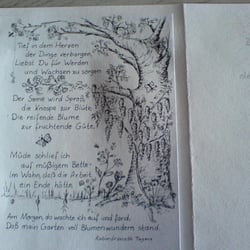 Tief in dem Herzen
der Dinge verborgen,
Liebst Du für Werden
und Wachsen zu sorgen.
Der Same wird Sproß,
die Knospe zur Blüte,
Die reifende Blume
zur fruchtende Güte.
Müde schlief ich
auf müßigem Bette
Im Wahn, daß die Arbeit
ein Ende hätte.
Am Morgen, da wachte ich auf und fand,
Daß mein Garten voll Blumenwundern stand.
Rabindranath Tagore